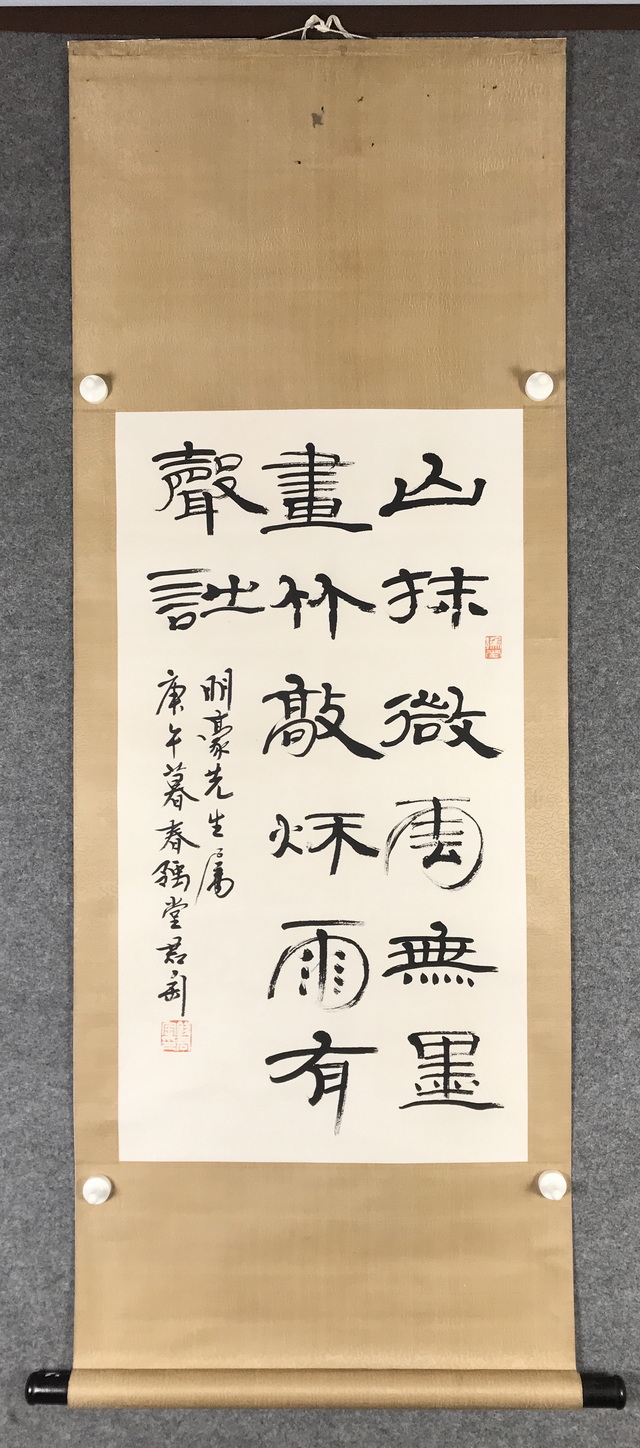 山抹微雲無墨
畫竹敲秌雨有
聲詩
明豪先生属
庚午暮春堂君